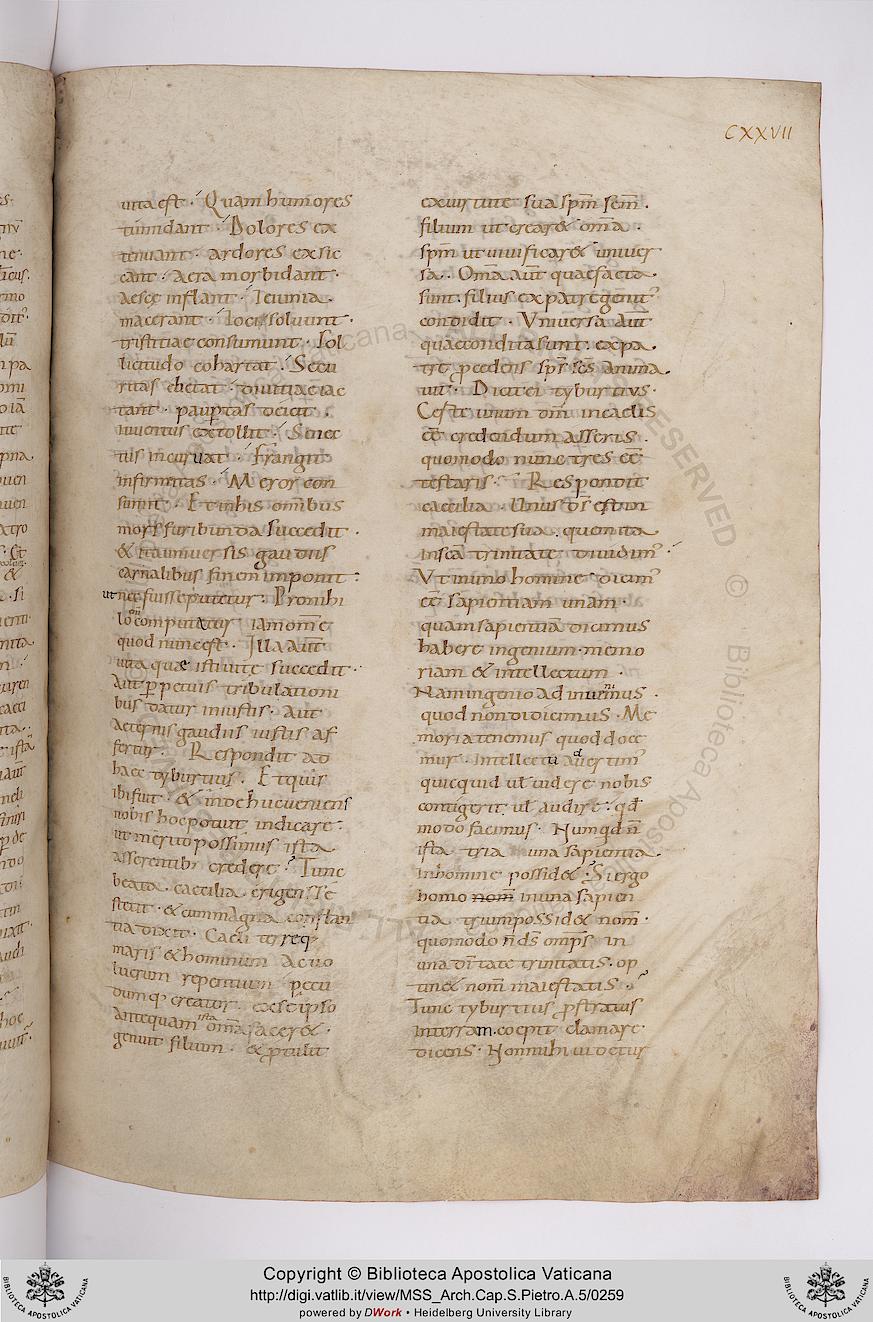 CXXVII
uita est · Quam humores
tumidant · Dolores ex
tenuant · ardores exsic
cant · Aera morbidant ·
aescę inflant · Ieiunia ·
macerant · Ioci soluunt ·
tristitiae consumunt · Sol
licitudo cohartat · Secu
ritas ebetat · diuitiae iac
tant · paup̄tas deicit ·
Iuuentus extollit · Senec
tus incuruat · Frangit
infirmitas · Meror con
sumit · Et in his omnibus
mors furibunda succedit ·
& ita uniuersis gaudiis
carnalibus finem imponit ·
ut nec fuisse putetur · Pro nihi
lo computatur iam om̄e
quod nunc est · Illa aut̄
uita quae isti uitę succedit ·
Aut p̱petuis tribulationi
bus datur iniustis · Aut
aeternis gaudiis iustis af
fertur · Respondit ad
haec tyburtius · Et quis
ibi fuit · & inde huc ueniens
nobis hoc potuit indicare ·
ut merito possimus ista
asserentibꝰ credere · Tunc
beata caecilia erigens se
stetit · & cum magna constan
tia dixit · Caeli terreq;
maris & hominum ac uo
lucrum repentium pecu
dumq; creator · ex se ipso
antequam ista om̄a facer& ·
genuit filium · & p̱tulit
ex uirtute sua sp̄m sc̄m ·
filium ut crear& om̄a ·
sp̄m ut uiuificar& uniuer
sa · Om̄a aut̄ quae facta ·
sunt · filius ex patre genitꝰ
condidit · Vniuersa aut̄
quae condita sunt · ex pa ·
tre p̱cedens sp̄s sc̄s anima ·
uit · Dicit ei tyburtius ·
Certe unum dm̄ in caelis
ēē credendum asseris ·
quomodo nunc tres ēē
testaris · Respondit
caecilia · Unus d̄s est in
maiestate sua · quem ita
in sc̄a trinitate diuidimꝰ ·
Vt in uno homine dicimꝰ
ēē sapientiam unam ·
quam sapientiā dicimus
habere ingenium · memo
riam & intellectum ·
Nam ingenio adinuenimus ·
quod non didicimus · Me
moria tenemus quod doce
mur · Intellectu aduertimꝰ
quicquid ul̄ uidere nobis
contigerit · ul̄ audire · qd̄
modo facimus · Numqd n̄
ista tria una sapientia ·
In homine possid& · Si ergo
homo nom̄ in una sapien
tia trium possid& nom̄ ·
quomodo n̄ d̄s omp̄s in
una deitate trinitatis · op
tin& nom̄ maiestatis ·
Tunc tyburtius p̱stratus
in terram · coepit clamare ·
dicens · Non mihi uidetur
Copyright © Biblioteca Apostolica Vaticana
http://digi.vatlib.it/view/MSS_Arch.Cap.S.Pietro.A.5/0259
powered by DWork • Heidelberg University Library